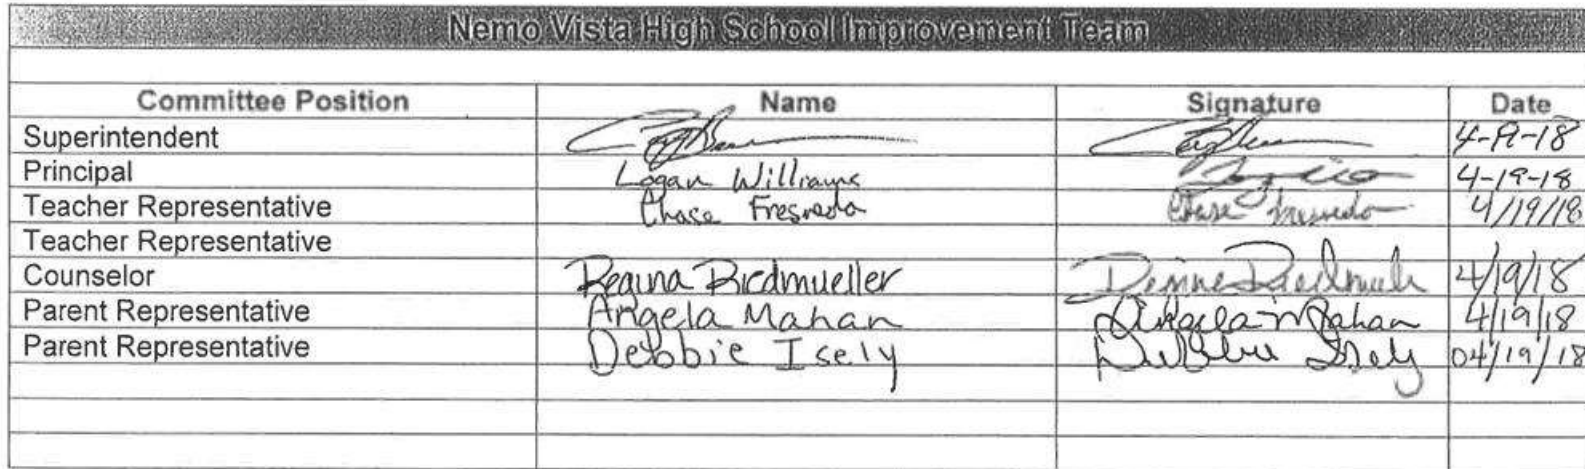 Nemo Vista High School Improvement Team
Committee Position Name Signature Date
Superintendent 4-19-18
Principal Logan Williams 4-19-18
Teacher Representative Chase Fresneda Chase Fresneda 4/19/18
Teacher Representative
Counselor Regina Riedmueller 4/19/18
Parent Representative Angela Mahan Angela Mahan 4/19/18
Parent Representative Debbie Isely Debbie Isely 04/19/18